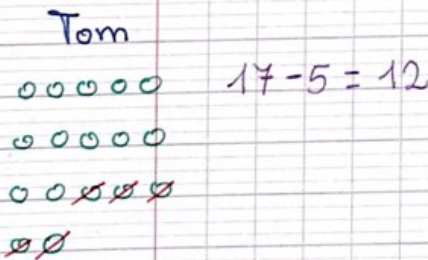 Tom
17-5=12